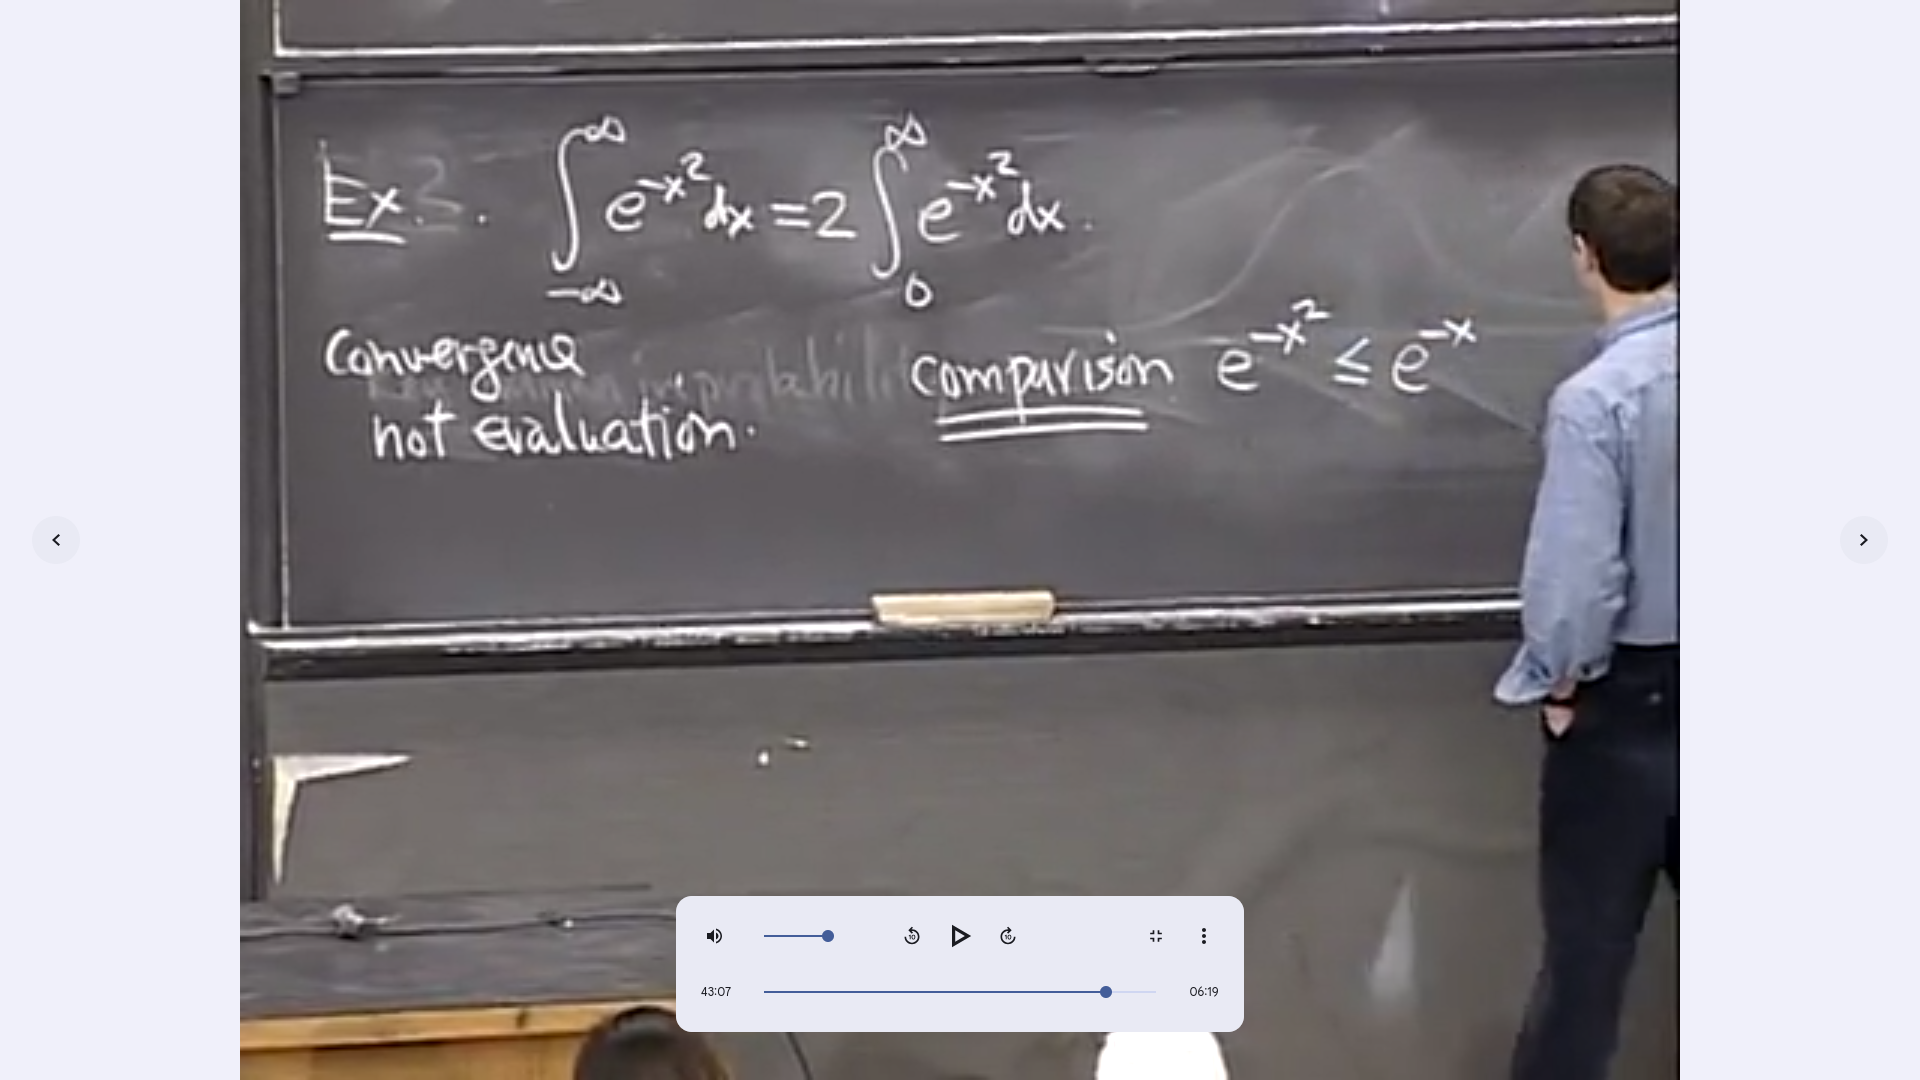 Ex. ∫_{-∞}^{∞} e^{-x²} dx = 2 ∫_0^∞ e^{-x²} dx.
Convergence
not evaluation.
comparison e^{-x²} ≤ e^{-x}
10 10
43:07 06:19